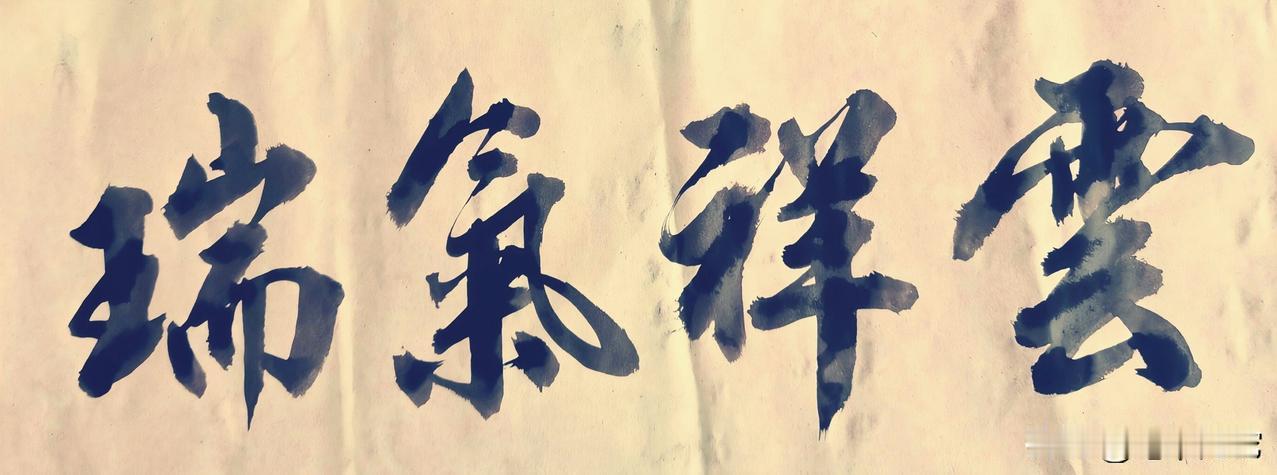 瑞氣祥雲